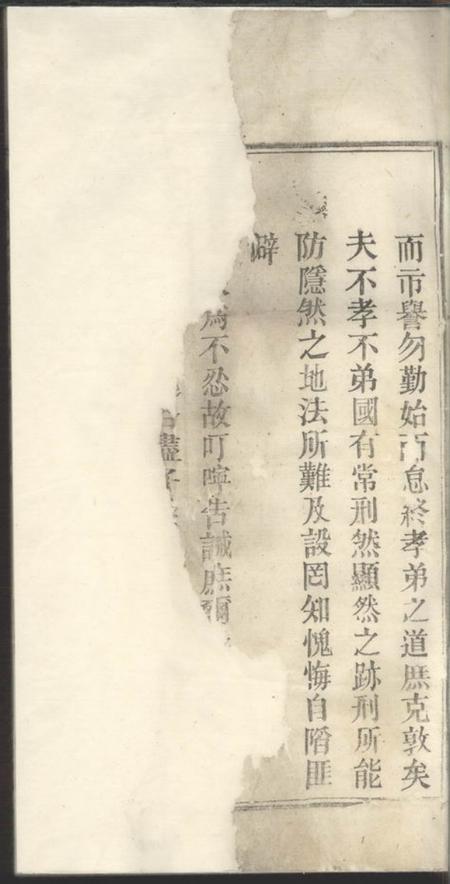 而市譽勿勤始而怠終孝弟之道庶克敦矣
夫不孝不弟國有常刑然顯然之跡刑所能
防隱然之地法所難及設罔知愧悔自陷匪
辟
為不忍故叮嚀告誡庶爾
盡子